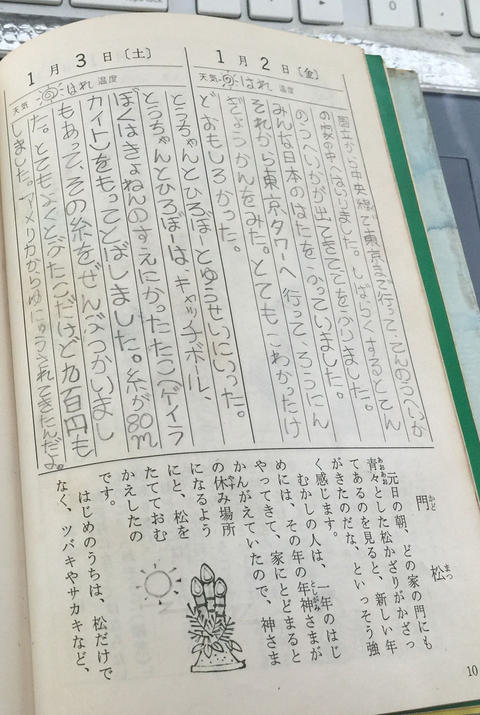 1月2日〔金〕
天気 はれ 温度
国立から中央線で東京まで行って、てんのうへいか
の家の中へはいりました。しばらくするとてん
のうへいかが出てきて手をふりました。
みんな日本のはたをふっていました。
それから東京タワーへ行って、ろうにん
ぎょうかんをみた。とてもこわかったけ
どおもしろかった。
1月3日〔土〕
天気 はれ 温度
とうちゃんとひろぼーとゆうせいにいった。
とうちゃんとひろぼーは、キャッチボール、
ぼくはきょねんのすえにかったたこ(ゲイラ
カイト)をもってとばしました。糸が80m
もあって、その糸をぜんぶつかいまし
た。とてもよくとぶたこだけど九百円も
しました。アメリカからゆにゅうされてきたんだよ。
門松
かど まつ
元日の朝、どの家の門にも
青々とした松かざりがかざっ
あおあお
てあるのを見ると、新しい年
がきたのだな、といっそう強
く感じます。
むかしの人は、一年のはじ
めには、その年の年神さまが
としがみ
やってきて、家にとどまると
かんがえていたので、神さま
の休み場所
やす
になるよう
にと、松を
たてておむ
かえしたの
です。
はじめのうちは、松だけで
なく、ツバキやサカキなど、
10